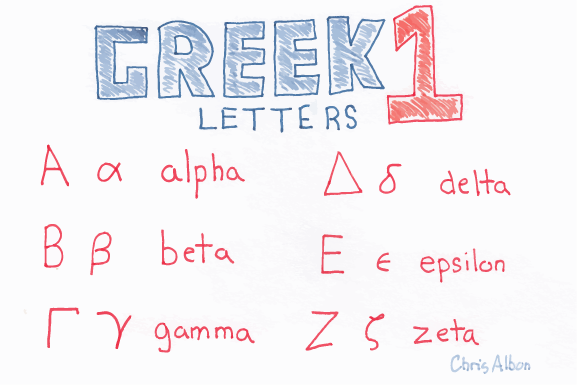 GREEK 1
LETTERS
Α α alpha
Β β beta
Γ γ gamma
Δ δ delta
Ε ϵ epsilon
Ζ ζ zeta
Chris Albon